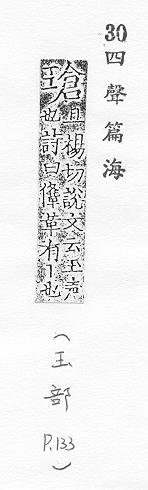 30四聲篇海
瑲
且楊切說文云玉声
也詩曰鞗革有丨也
（玉部 P.133）